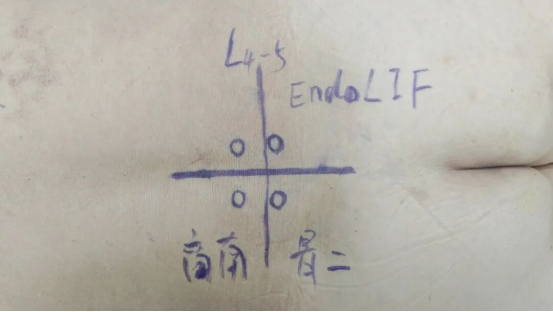 L4-5
EndoLIF
高南 骨二